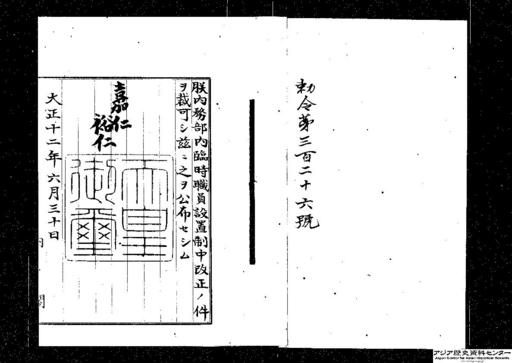 勅令第三百二十六號
朕内務部内臨時職員設置制中改正ノ件
ヲ裁可シ茲ニ之ヲ公布セシム
嘉仁
裕仁
天皇
御璽
大正十二年六月三十日
アジア歴史資料センター
Japan Center for Asian Historical Records